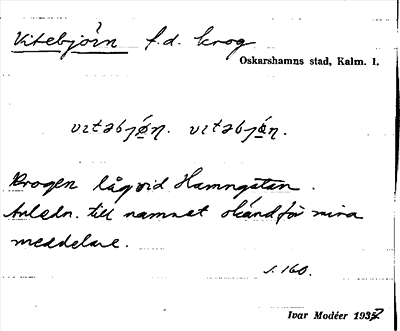 Vitebjörn f.d. krog
Oskarshamns stad, Kalm. l.
vıtəbjǿɳ. vıtəbjǿɳ.
Krogen låg vid Hamngatan.
Anledn. till namnet okänd för mina
meddelare.
s. 160.
Ivar Modéer 1932